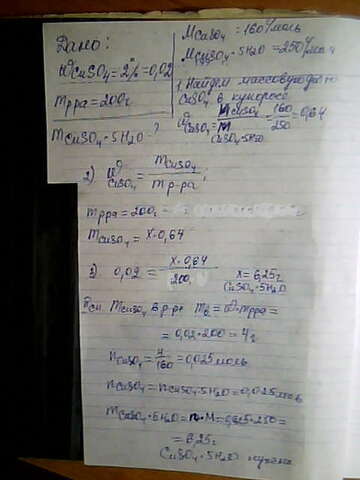 Дано:
ωCuSO₄ = 2% = 0,02
mрра = 200г
mCuSO₄·5H₂O - ?
MCuSO₄ = 160г/моль
MCuSO₄·5H₂O = 250г/моль
1. Найдем массовую долю
CuSO₄ в купоросе
ωCuSO₄ = MCuSO₄ / MCuSO₄·5H₂O = 160/250 = 0,64
2) ωCuSO₄ = mCuSO₄ / mр-ра;
mрра = 200г
mCuSO₄ = x·0,64
3) 0,02 = x·0,64 / 200 x = 6,25г
CuSO₄·5H₂O
mCuSO₄ в р-ре mв = ω·mрра =
= 0,02·200 = 4г
nCuSO₄ = 4/160 = 0,025моль
nCuSO₄ = nCuSO₄·5H₂O = 0,025моль
mCuSO₄·5H₂O = n·M = 0,025·250 =
= 6,25г
CuSO₄·5H₂O